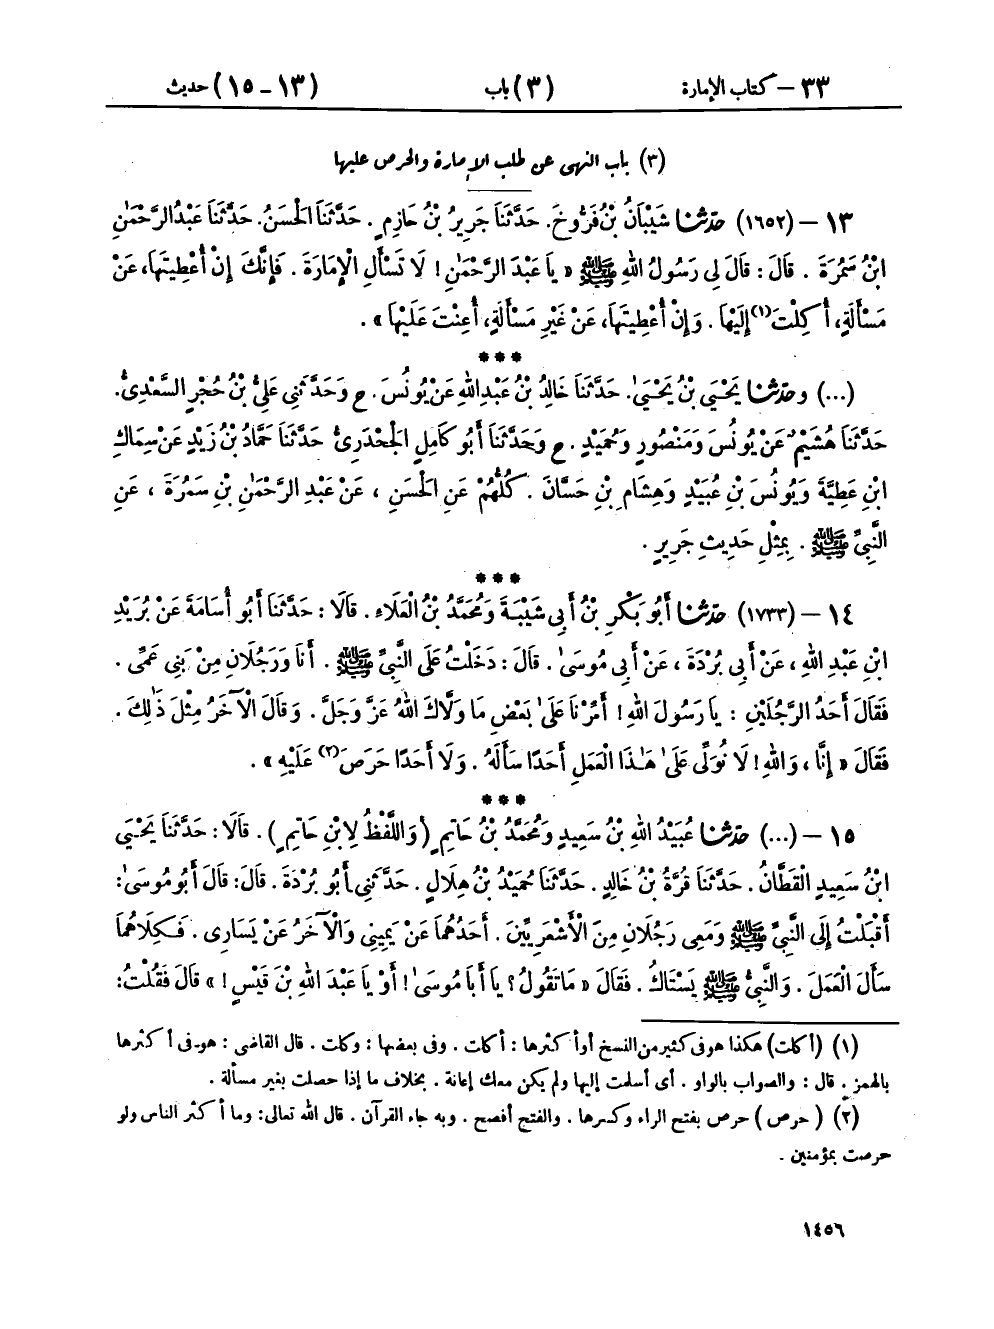 ٣٣ – كتاب الإمارة (٣) باب (١٣ – ١٥) حديث
(٣) باب النهى عن طلب الإمارة والحرص عليها
١٣ – (١٦٥٢) حَدَّثَنَا شَيْبَانُ بْنُ فَرُّوخَ. حَدَّثَنَا جَرِيرُ بْنُ حَازِمٍ. حَدَّثَنَا الْحَسَنُ. حَدَّثَنَا عَبْدُ الرَّحْمَٰنِ
ابْنُ سَمُرَةَ. قَالَ: قَالَ لِي رَسُولُ اللهِ ﷺ « يَا عَبْدَ الرَّحْمَٰنِ! لَا تَسْأَلِ الْإِمَارَةَ. فَإِنَّكَ إِنْ أُعْطِيتَهَا، عَنْ
مَسْأَلَةٍ، أُكِلْتَ(١) إِلَيْهَا. وَإِنْ أُعْطِيتَهَا، عَنْ غَيْرِ مَسْأَلَةٍ، أُعِنْتَ عَلَيْهَا ».
***
(...) وحَدَّثَنَا يَحْيَى بْنُ يَحْيَىٰ. حَدَّثَنَا خَالِدُ بْنُ عَبْدِ اللهِ عَنْ يُونُسَ. ع وَحَدَّثَنِي عَلِيُّ بْنُ حُجْرٍ السَّعْدِيُّ.
حَدَّثَنَا هُشَيْمٌ عَنْ يُونُسَ وَمَنْصُورٍ وَحُمَيْدٍ. ع وَحَدَّثَنَا أَبُو كَامِلٍ الْجَحْدَرِيُّ حَدَّثَنَا حَمَّادُ بْنُ زَيْدٍ عَنْ سِمَاكِ
ابْنِ عَطِيَّةَ وَيُونُسَ بْنِ عُبَيْدٍ وَهِشَامِ بْنِ حَسَّانَ. كُلُّهُمْ عَنِ الْحَسَنِ، عَنْ عَبْدِ الرَّحْمَٰنِ بْنِ سَمُرَةَ، عَنِ
النَّبِيِّ ﷺ. بِمِثْلِ حَدِيثِ جَرِيرٍ.
***
١٤ – (١٧٣٣) حَدَّثَنَا أَبُو بَكْرِ بْنُ أَبِي شَيْبَةَ وَمُحَمَّدُ بْنُ الْعَلَاءِ. قَالَا: حَدَّثَنَا أَبُو أُسَامَةَ عَنْ بُرَيْدِ
ابْنِ عَبْدِ اللهِ، عَنْ أَبِي بُرْدَةَ، عَنْ أَبِي مُوسَىٰ. قَالَ: دَخَلْتُ عَلَى النَّبِيِّ ﷺ. أَنَا وَرَجُلَانِ مِنْ بَنِي عَمِّي.
فَقَالَ أَحَدُ الرَّجُلَيْنِ: يَا رَسُولَ اللهِ! أَمِّرْنَا عَلَىٰ بَعْضِ مَا وَلَّاكَ اللهُ عَزَّ وَجَلَّ. وَقَالَ الْآخَرُ مِثْلَ ذَٰلِكَ.
فَقَالَ « إِنَّا، وَاللهِ! لَا نُوَلِّي عَلَىٰ هَٰذَا الْعَمَلِ أَحَدًا سَأَلَهُ. وَلَا أَحَدًا حَرَصَ(٢) عَلَيْهِ ».
***
١٥ – (...) حَدَّثَنَا عُبَيْدُ اللهِ بْنُ سَعِيدٍ وَمُحَمَّدُ بْنُ حَاتِمٍ (وَاللَّفْظُ لِابْنِ حَاتِمٍ). قَالَا: حَدَّثَنَا يَحْيَى
ابْنُ سَعِيدٍ الْقَطَّانُ. حَدَّثَنَا قُرَّةُ بْنُ خَالِدٍ. حَدَّثَنَا حُمَيْدُ بْنُ هِلَالٍ. حَدَّثَنِي أَبُو بُرْدَةَ. قَالَ: قَالَ أَبُو مُوسَىٰ:
أَقْبَلْتُ إِلَى النَّبِيِّ ﷺ وَمَعِي رَجُلَانِ مِنَ الْأَشْعَرِيِّينَ. أَحَدُهُمَا عَنْ يَمِينِي وَالْآخَرُ عَنْ يَسَارِي. فَكِلَاهُمَا
سَأَلَ الْعَمَلَ. وَالنَّبِيُّ ﷺ يَسْتَاكُ. فَقَالَ « مَا تَقُولُ؟ يَا أَبَا مُوسَىٰ! أَوْ يَا عَبْدَ اللهِ بْنَ قَيْسٍ! » قَالَ فَقُلْتُ:
(١) (أكلت) هكذا هو فى كثير من النسخ أو أكثرها: أكلت. وفى بعضها: وكلت. قال القاضى: هو فى أكثرها
بالهمز. قال: والصواب بالواو. أى أسلمت إليها ولم يكن معك إعانة. بخلاف ما إذا حصلت بغير مسألة.
(٢) (حرص) حرص بفتح الراء وكسرها. والفتح أفصح. وبه جاء القرآن. قال الله تعالى: وما أكثر الناس ولو
حرصت بمؤمنين.
١٤٥٦